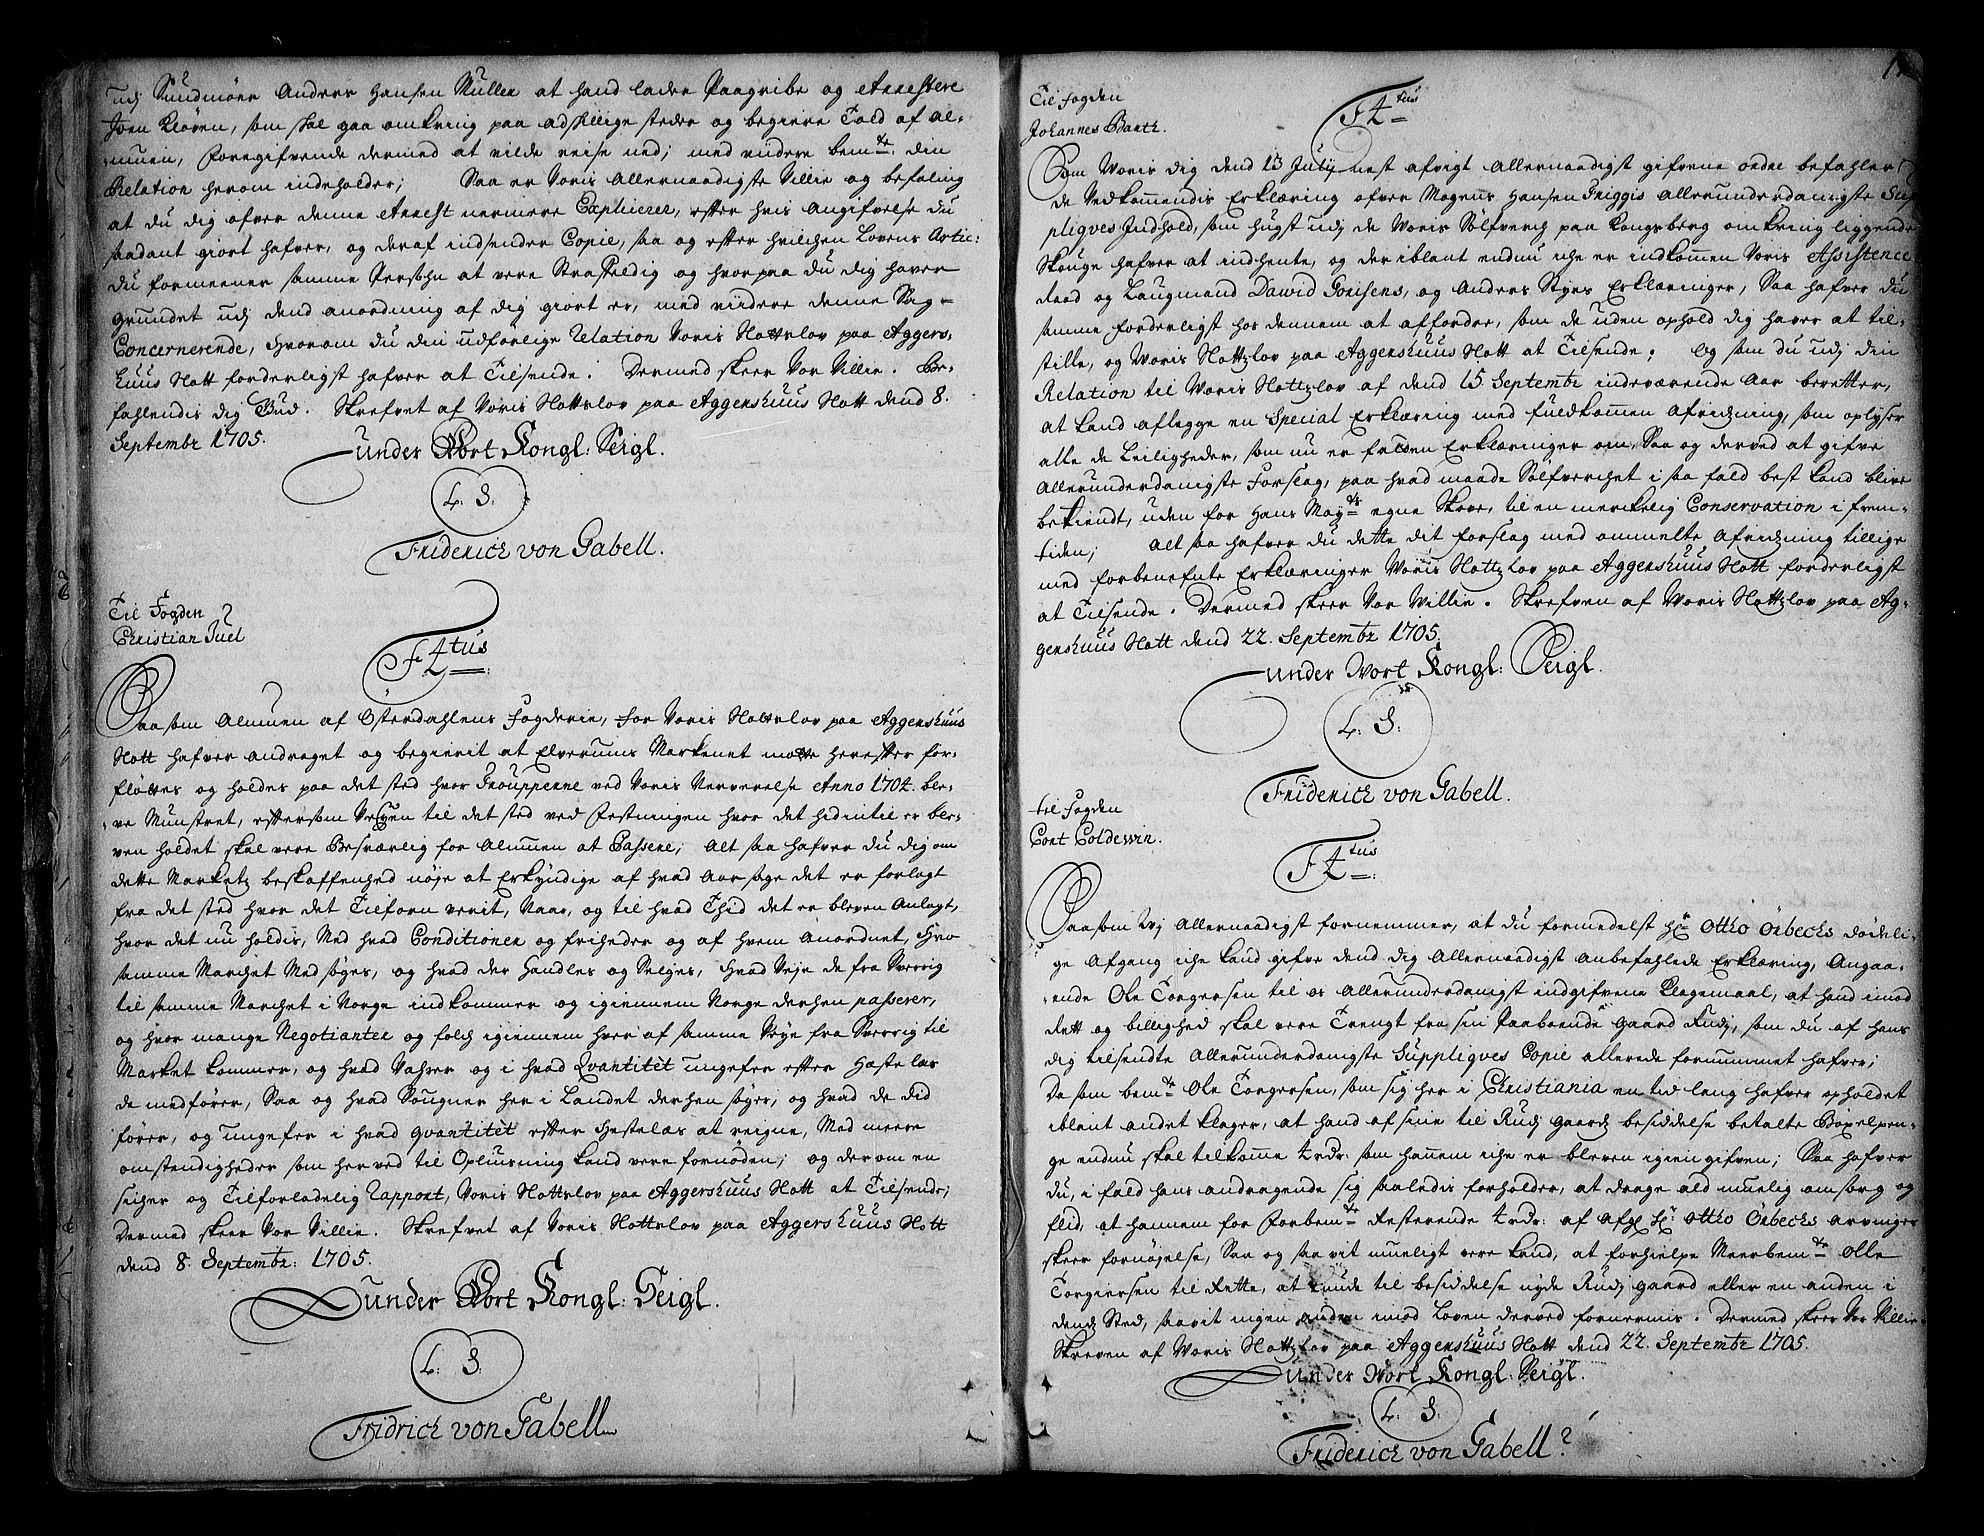 udj Sundmøer Anders Hansen Müller at hand lader Paagribe og Arrestere
Joen Kløven, som skal gaa omkring paa adskillige steder og begiere Told af al-
muen, Foregifvende dermed at vilde reise ned; med viidere bemte din
Relation herom indeholder; Saa er Voris Allernaadigste Villie og befaling
at du dig ofver denne Arrest nermere Explicerer, efter hvis Angifvelse du
saadant giort hafver, og deraf indsender Copie, saa og efter hvilchen Lovens Artic:
du formeener samme Persohn at vere Straffeldig og hvorpaa du dig haver
grundet udj dend anordning af dig giort er, med viidere denne Sag
Concernerende, hvorom du din udforlige Relation Voris Slottslov paa Aggers-
huus Slott forderligst hafver at Tilsende. Dermed skeer Vor Villie. Be-
fahlendis dig Gud. Skrefvet af Voris Slottslov paa Aggershuus Slott dend 8.
Septembr 1705.
under Vort Kongl: Seigl.
L. S.
Friderich von Gabell.
Til Fogden
Christian Juel
F 4tus
Saasom Almuen af Østerdahlens Fogderie, for Voris Slottslov paa Aggershuus
Slott hafver andraget og begierit at Elverums Markenet motte herefter for-
fløttes og holdes paa det sted hvor Troupperne ved Voris Nerverelse Anno 1704. ble-
ve Munstret, eftersom Veyen til det sted ved Festningen hvor det hidintil er ble-
ven holdet skal vere Besværlig for Almuen at Passere; Alt saa hafver du dig om
dette Markets beskaffenhed nøje at Erkyndige af hvad Aarsage det er forlagt
fra det sted hvor det Tilforn verit, Naar, og til hvad Thid det er bleven Anlagt,
hvor det nu holdis, Med hvad Conditioner og friheder og af hvem Anordnet, Hvo
samme Marchet Med søges, og hvad der Handles og Selges, Hvad Veje de fra Sverrig
til samme Marchet i Norge indkommer og igiennem Norge derhen passerer,
og hvor mange Negotianter og folch igiennem her af samme Veye fra Sverrig til
Market kommer, og hvad Vahrer og i hvad Qvantitet ungefer efter Hæstelæs
de medfører, Saa og hvad Sougner her i Landet derhen søger, og hvad de did
fører, og ungefer i hvad qvantitet efter Hestelæs at reigne, Med meere
omstendigheder som herved til Opliusning kand vere fornøden; og derom en
sicher og Tilforladelig Rapport, Voris Slottslov paa Aggershuus Slott at Tilsende;
Dermed skeer Vor Villie. Skrefvet af Voris Slottslov paa Aggershuus Slott
dend 8. Septembr: 1705.
under Vort Kongl: Seigl.
L. S.
Fridrich von Gabell
Til Fogden
Johannes Barth.
F 4tus
Som Voris dig dend 13 July nest afvigt Allernaadigst gifvene ordre befahler
de Vedkommendis Erklæring ofver Magnus Hansen Friggis Allerunderdanigste Sup
pliqves Indhold, som hugst udj de Voris Sølfverch paa Kongsberg omkring liggende
Skouge hafver at indhente, og deriblant endnu iche er indkommen Voris Assistence
Raad og Laugmand Dawid Gorisens, og Anders Styrs Erklæringer, Saa hafver du
samme forderligst hos dennem at affordre, som de uden ophold dig haver at til-
stille, og Voris Slottzlov paa Aggershuus Slott at Tilsende. Og som du udj din
Relation til Voris Slottzlov af dend 15. Septembr indeværende Aar beretter,
at kand aflegge en Special Erklæring med fuldkommen Afridzning, som oplyser
alle de Leiligheder, som nu er falden Erklæringer om, Saa og derved at gifve
Allerunderdanigste Forslag, paa hvad maade Sølfverchet i saa fald best kand blive
bekiendt, uden for Hans Mayts egne Skove, til en merckelig Conservation i frem-
tiden; Alt saa hafver du dette dit forslag med ommelte Afridzning tillige
med forbenefnte Erklæringer Woris Slottzlov paa Aggershuus Slott forderligst
at Tilsende. Dermed skeer Vor Willie. Skrefven af Woris Slottzlov paa Ag-
gershuus Slott dend 22. Septembr 1705.
under Wort Kongl: Seigl.
L. S.
Friderich von Gabell.
til Fogden
Cort Coldewin.
F 4tus
Saasom Wj Allernaadigst fornemmer, at du formedelst Hr Ottho Orbechs dødeli-
ge Afgang iche kand gifve dend dig Allernaadigst Anbefahlede Erklæring, Angaa-
ende Ole Torgersen til os Allerunderdanigst indgifvene Klagemaal, at hand imod
Rett og billighed skal vere Trengt fra sin Paaboende gaard Rudz, som du af hans
dig tilsendte Allerunderdanigste Suppliqves Copie allerede fornummet hafver;
Da som bemte Ole Torgersen, som sig her i Christiania en tid lang hafver opholdet
iblant andet klager, at hand af sine til Rudz gaardz besiddelse betalte Bøxelpen-
ge endnu skal tilkomme 4 rdr. som hannem iche er bleven igiengifven; Saa hafver
du, i fald hans andragende sig saaledis forholder, at drage ald muelig omsorg og
flid, at hannem for Forbemte Resterende 4 rdr: af Afgl Hr Ottho Orbechs arvinger
skeer fornøjelse, Saa og saa vit mueligt vere kand, at forhielpe Meerbemte Olle
Torgiersen til Rette, at kunde til besiddelse nyde Rudz gaard eller en anden i
dendz Sted, saavit ingen anden imod Loven derved fornermis. Dermed skeer Vor Villie.
Skreven af Woris Slottzlov paa Aggershuus Slott dend 22. Septembr 1705.
under Wort Kongl: Seigl.
L. S.
Friderich von Gabell